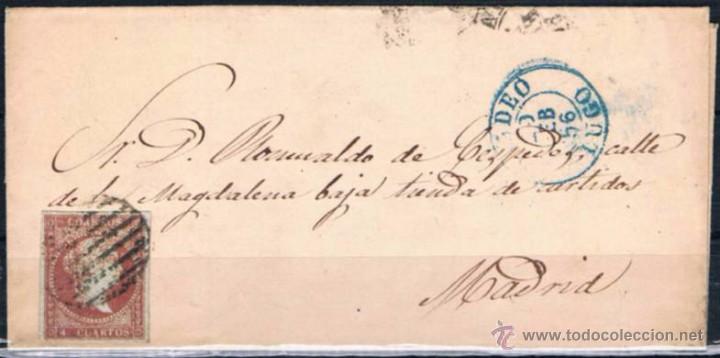 DEO
FEB
56
LUGO
Sr. D. Romualdo de Cespedes, calle
de la Magdalena baja tienda de
Madrid
CORREOS
4 CUARTOS
© www.todocoleccion.net